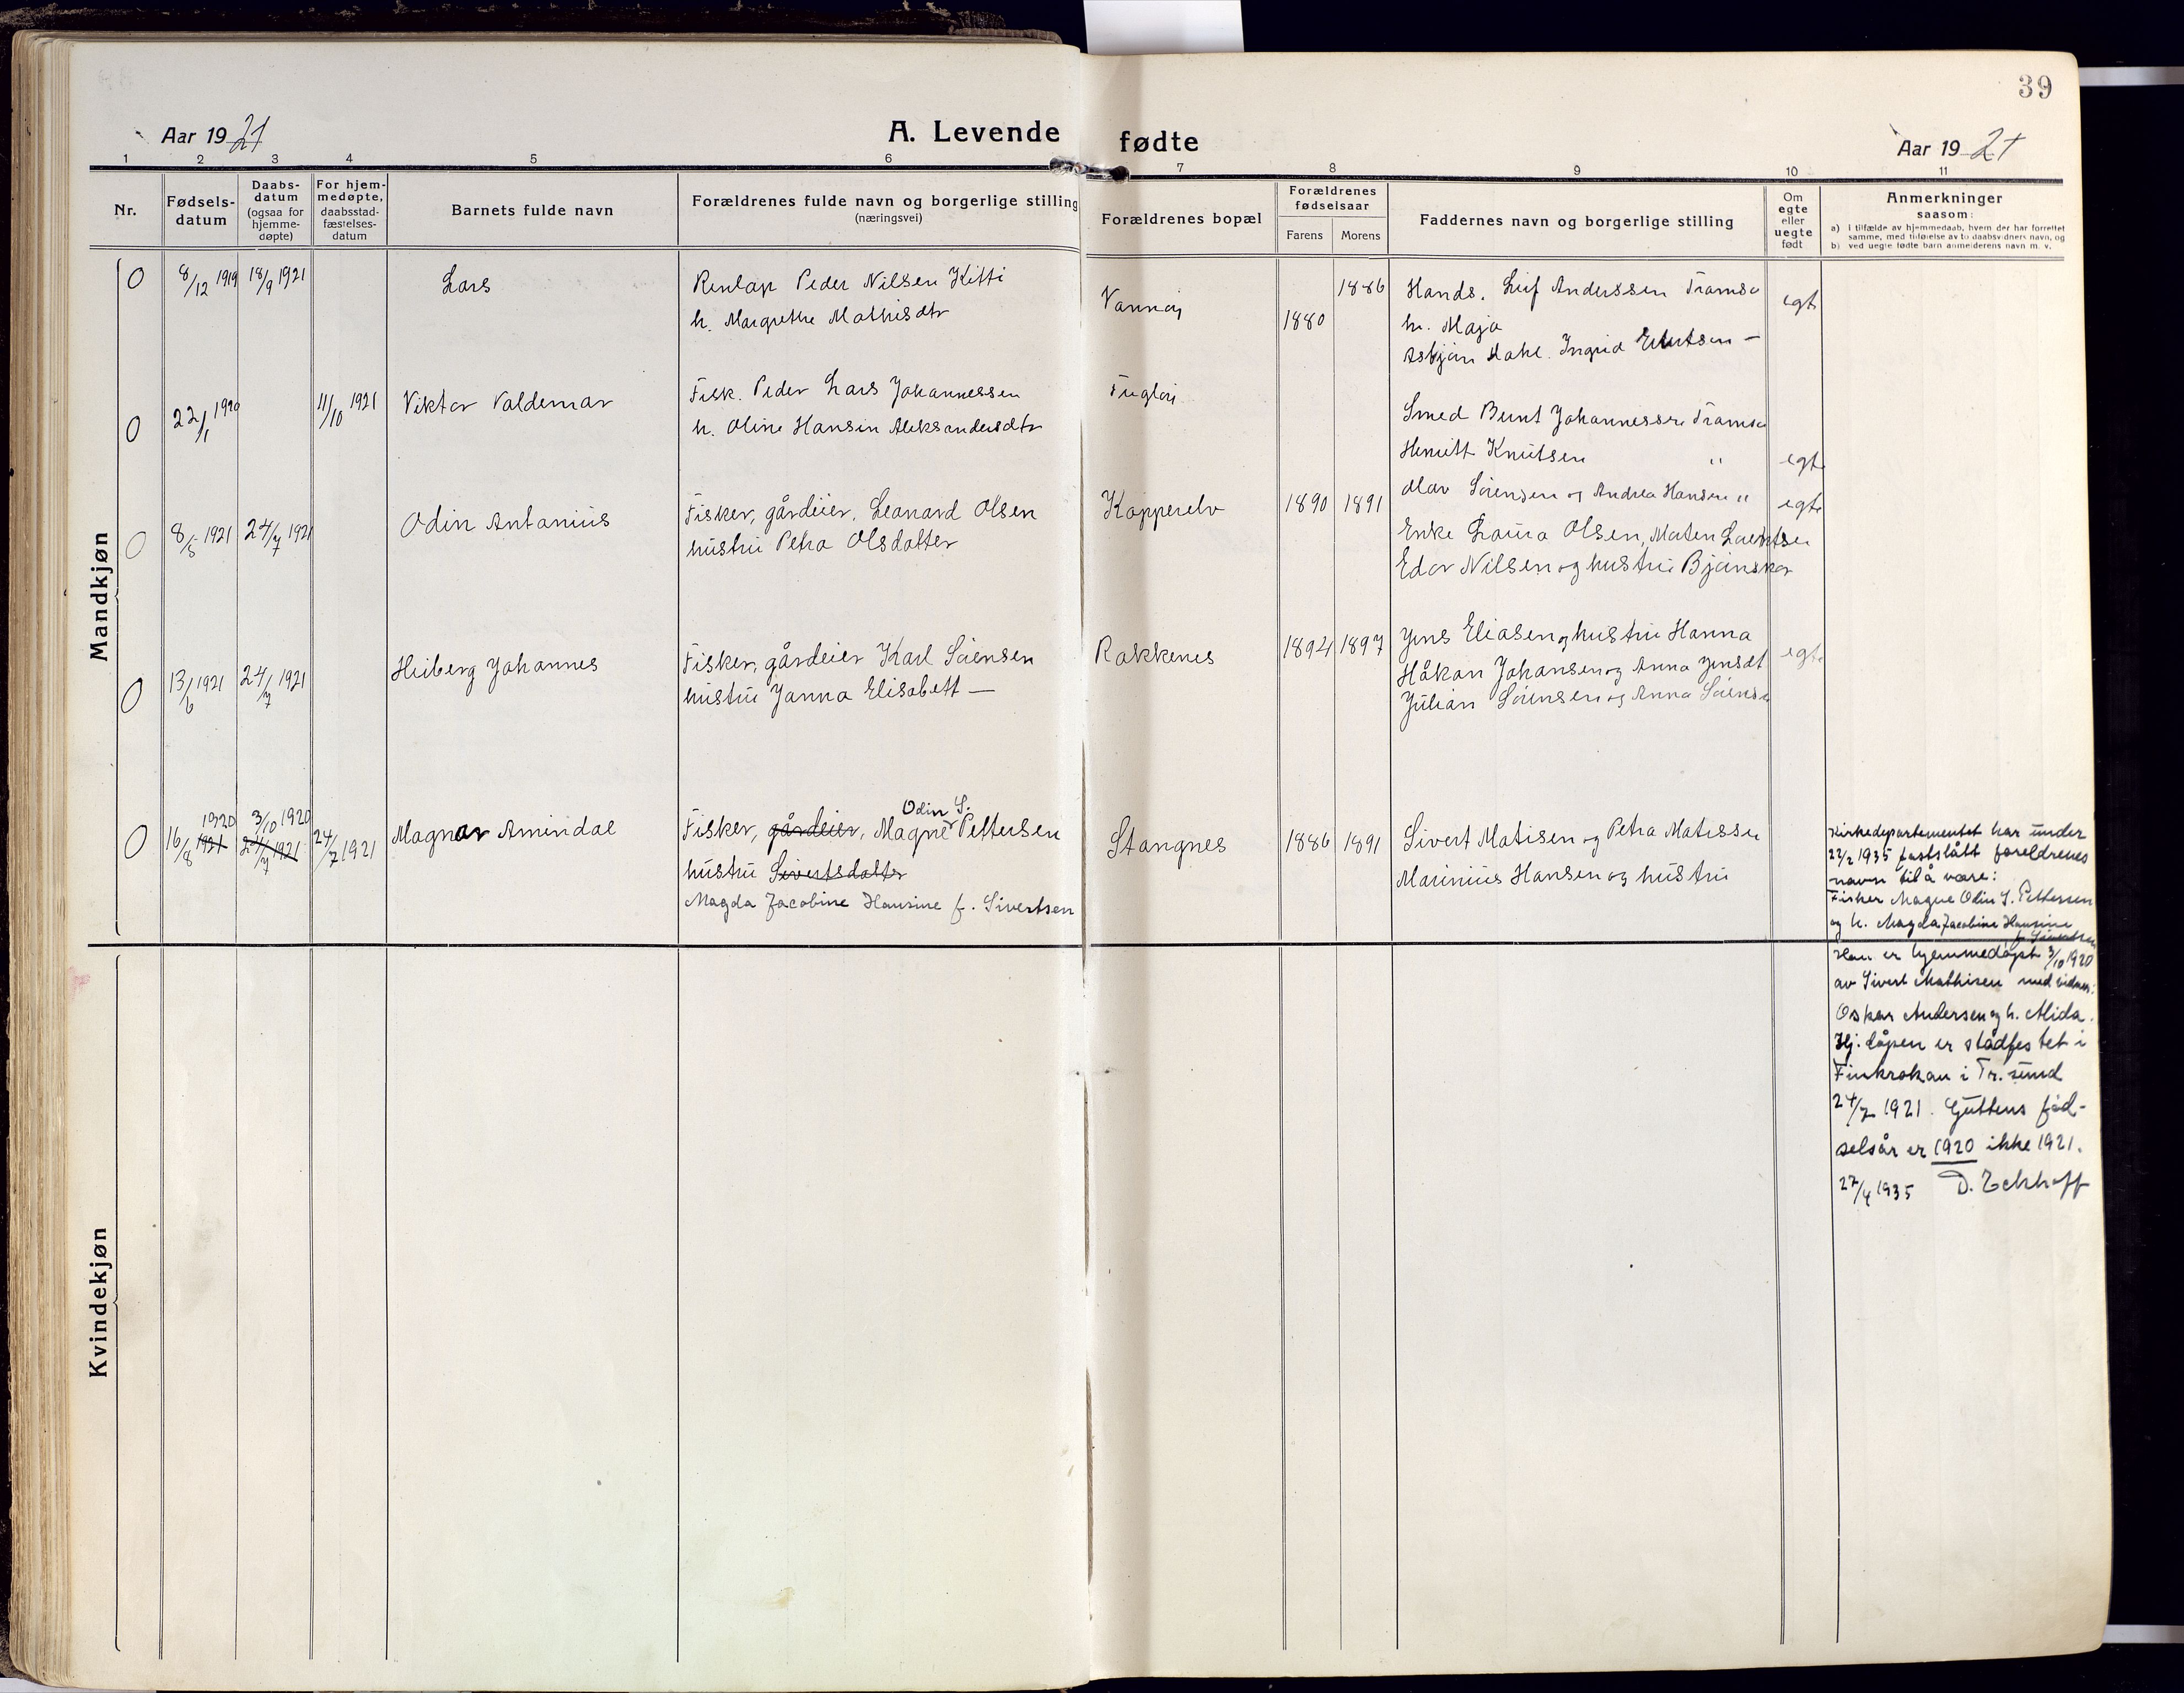 39
Aar 1921
A. Levende fødte
Aar 1921
1 2 3 4 5 6 7 8 9 10 11
Nr.
Fødsels-
datum
Daabs-
datum
(ogsaa for
hjemme-
døpte)
For hjem-
medøpte,
daabsstad-
fæstelses-
datum
Barnets fulde navn
Forældrenes fulde navn og borgerlige stilling
(næringsvei)
Forældrenes bopæl
Forældrenes
fødselsaar
Farens Morens
Faddernes navn og borgerlige stilling
Om
egte
eller
uegte
født
Anmerkninger
saasom:
a) i tilfælde av hjemmedaab, hvem der har forrettet
samme, med tilføielse av to daabsvidners navn, og
b) ved uegte fødte barn anmelderens navn m. v.
Mandkjøn
0 8/12 1919 18/9 1921 Lars
Renlap Peder Nilsen Kitti
h. Margrethe Mathisdtr
Vannøy 1880 1886
Hands. Leif Anderssen Tromsø
h. Maja
Asbjørn Dahl. Ingrid Evertsen —
egt
0 22/1 1920 11/10 1921 Viktor Valdemar
Fisk. Peder Lars Johannessen
h. Oline Hansin Aleksandersdtr
Fugløy
Smed Bernt Johannessen Tromsø
Henritt Knutsen "
Olav Sørensen og Andrea Hansen "
egt
0 8/5 1921 24/7 1921 Odin Antonius
Fisker, gårdeier, Leonard Olsen
hustru Petra Olsdatter
Kopperelv 1890 1891
Enke Laura Olsen, Morten Lorentsen
Edor Nilsen og hustru Bjørnskar
egte
0 13/6 1921 24/7 1921 Heiberg Johannes
Fisker, gårdeier Karl Sørensen
hustru Janna Elisabett —
Rakkenes 1894 1897
Jens Eliasen og hustru Hanna
Håkon Johansen og Anna Jensdt
Julian Sørensen og Anna Sørensen
egte
0 16/8 1920 1921 3/10 1920 24/7 1921 24/7 1921 Magnar Amindal
Odin S.
Fisker, gårdeier, Magne Pettersen
hustru Sivertsdatter
Magda Jacobine Hansine f. Sivertsen
Stangnes 1886 1891
Sivert Matisen og Petra Matissen
Marinius Hansen og hustru
Kirkedepartementet har under
22/2 1935 fastslått foreldrenes
navn til å være:
Fisker Magne Odin S. Pettersen
og h. Magda Jacobine Hansine
f. Sivertsen
Han er hjemmedøpt 3/10 1920
av Sivert Mathisen med vidner:
Oskar Andersen og h. Alida.
Hj. dåpen er stadfestet i
Finkroken i Tr.sund
24/7 1921. Guttens fød-
selsår er 1920 ikke 1921.
27/4 1935 D. Eckhoff
Kvindekjøn